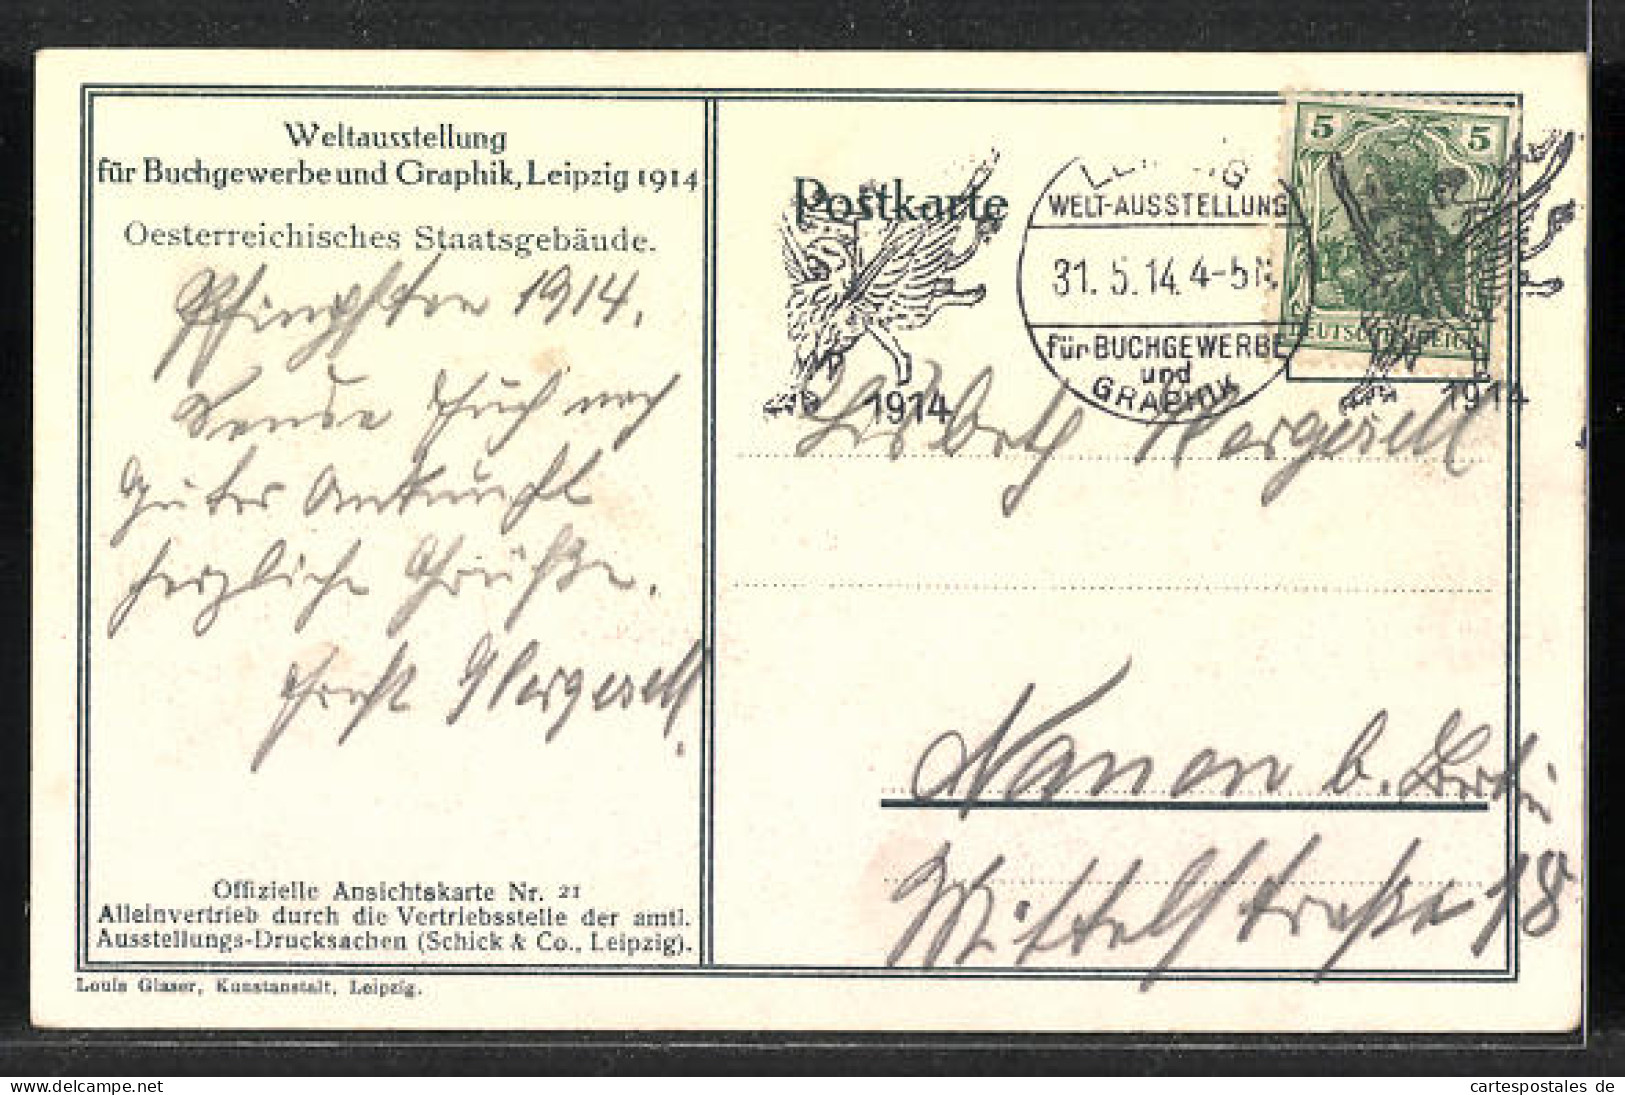 Weltausstellung
für Buchgewerbe und Graphik, Leipzig 1914
Oesterreichisches Staatsgebäude.
Pfingsten 1914.
Sende Euch nach
guter Ankunft
herzliche Grüße.
Ernst
Offizielle Ansichtskarte Nr. 21
Alleinvertrieb durch die Vertriebsstelle der amtl.
Ausstellungs-Drucksachen (Schick & Co., Leipzig).
Louis Glaser, Kunstanstalt, Leipzig.
Postkarte
1914
LEIPZIG
WELT-AUSSTELLUNG
31.5.14. 4-5N.
für BUCHGEWERBE
und
GRAPHIK
5 5
DEUTSCHES REICH
1914
Lisbeth
b. Berlin
Mittelstraße 18
delcampe.net
cartespostales de